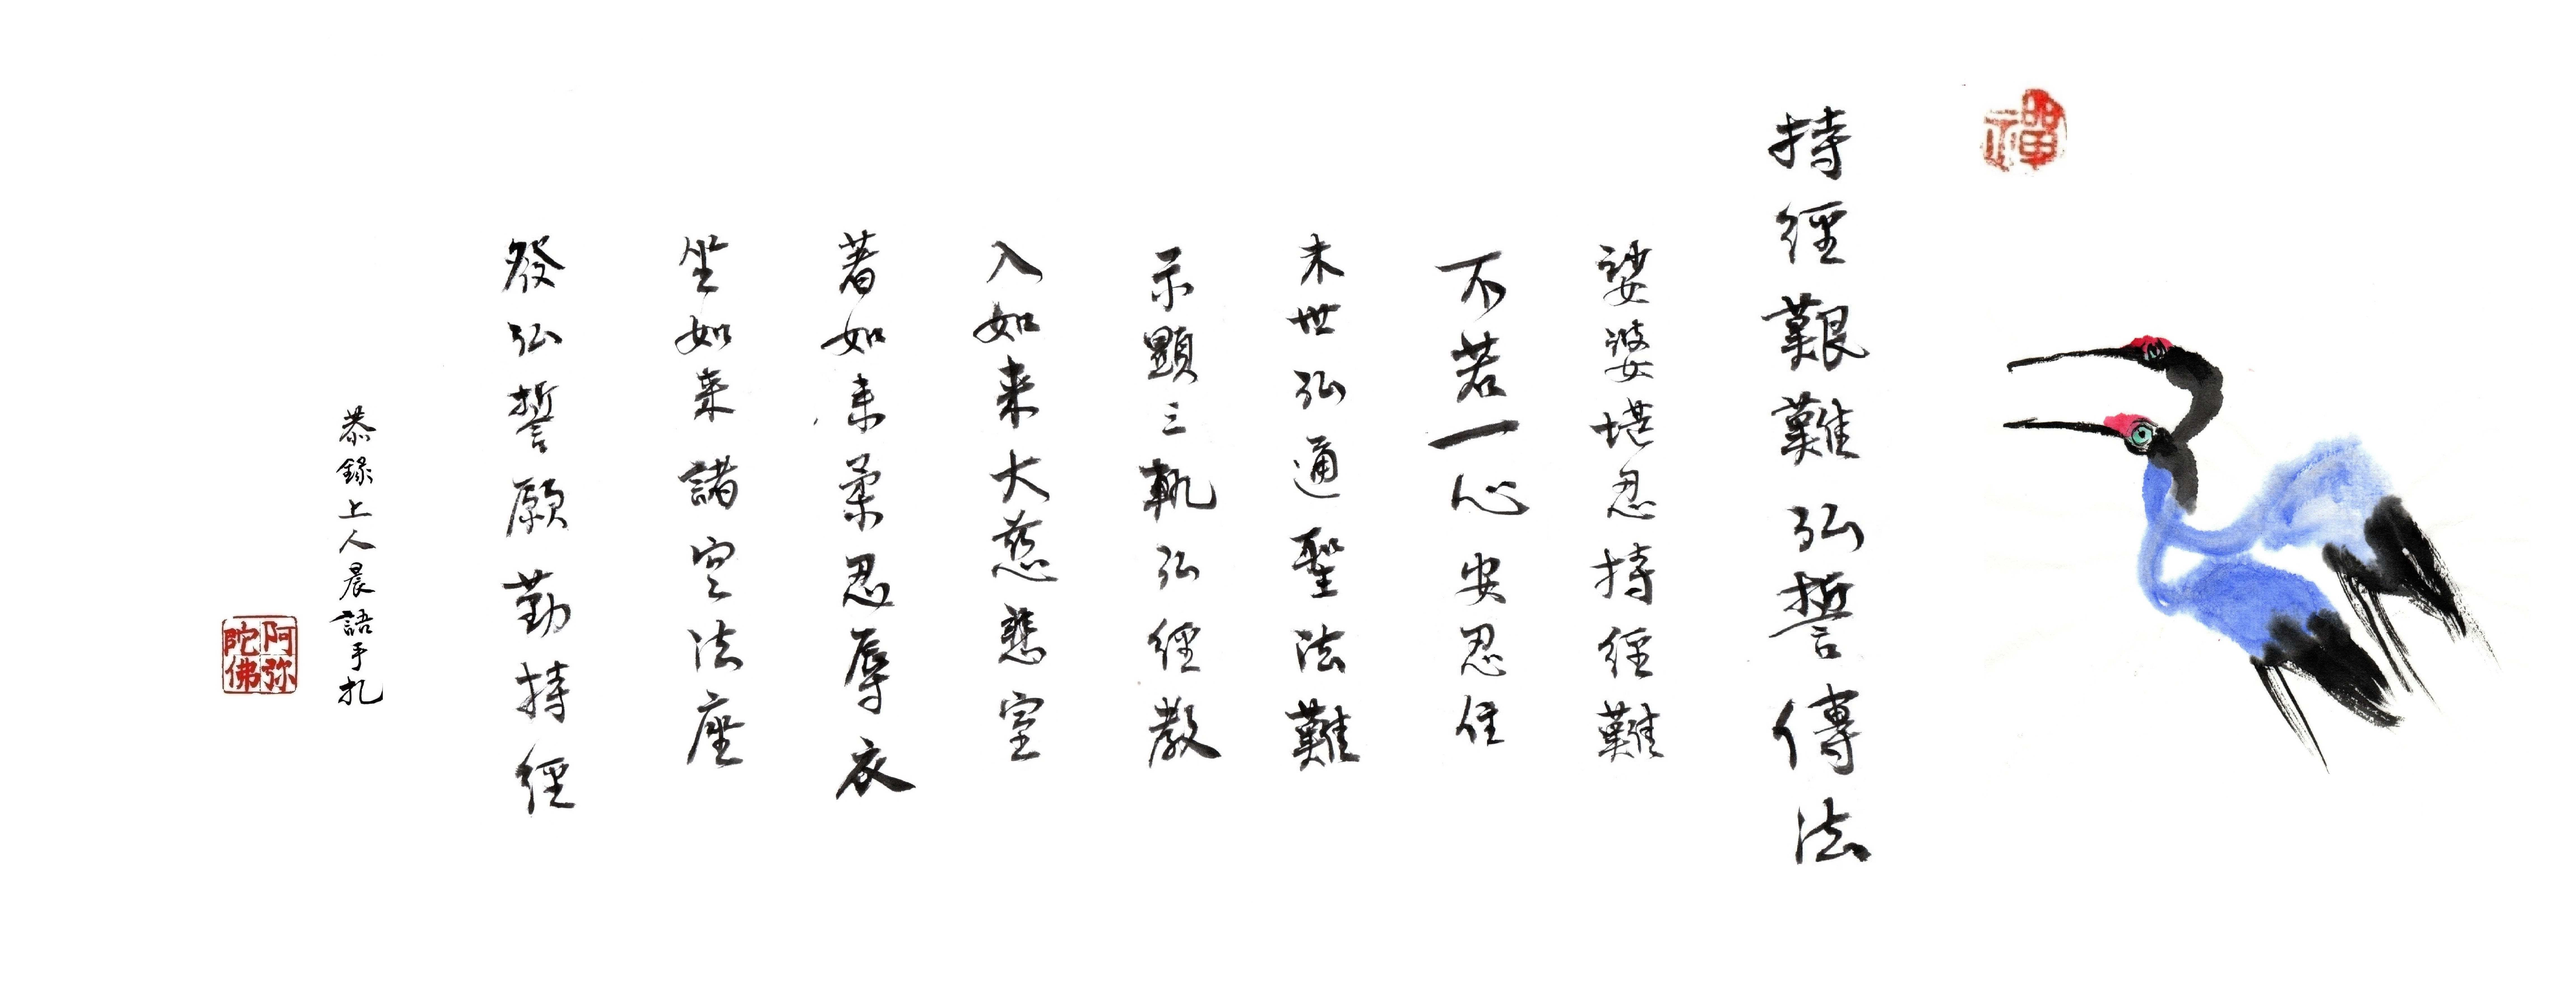 禪
持經艱難弘誓傳法
娑婆堪忍持經難
不若一心安忍住
末世弘通聖法難
示顯三軌弘經教
入如來大慈悲室
著如来柔忍辱衣
坐如来諸空法座
發弘誓願勤持經
恭錄上人晨語手札
阿弥
陀佛